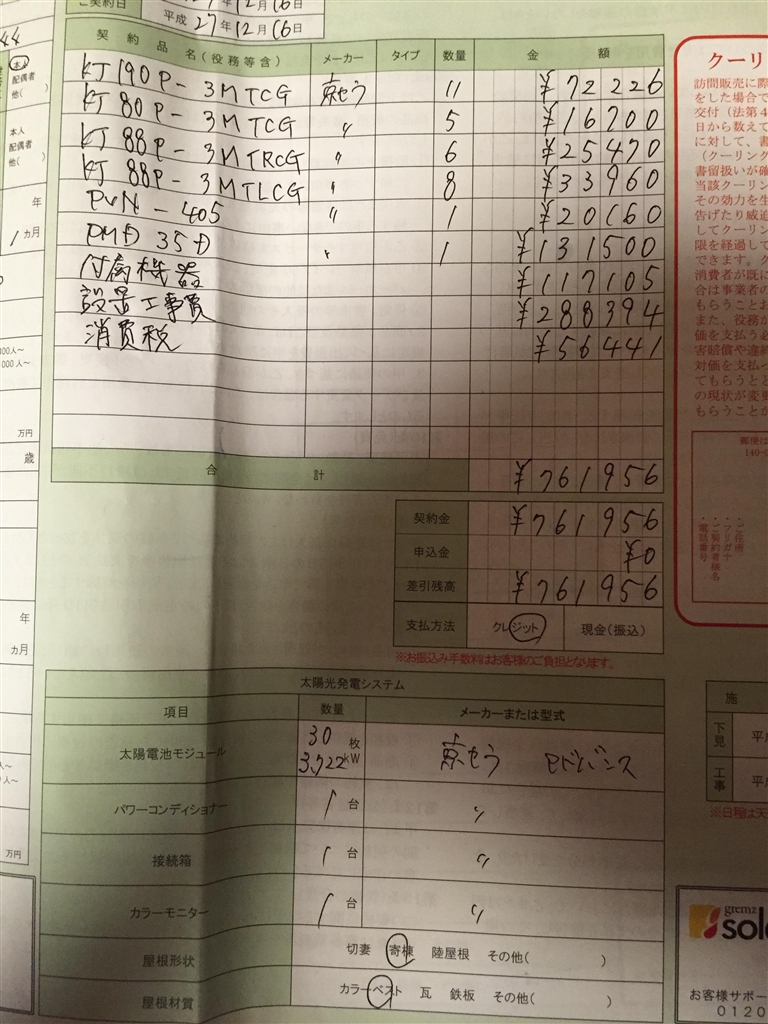 ご契約日
27年12月16日
平成27年12月16日
契約品名(役務等含) メーカー タイプ 数量 金額
KJ190P-3MTCG 京セラ 11 ¥72226
KJ80P-3MTCG 〃 5 ¥16700
KJ88P-3MTRCG 〃 6 ¥25470
KJ88P-3MTLCG 〃 8 ¥33960
PVN-405 〃 1 ¥20160
〃 1 ¥131500
付属機器 ¥117105
設置工事費 ¥288394
消費税 ¥56441
合計 ¥761956
契約金 ¥761956
申込金 ¥0
差引残高 ¥761956
支払方法 クレジット 現金(振込)
※お振込み手数料はお客様のご負担となります。
太陽光発電システム
項目 数量 メーカーまたは型式
太陽電池モジュール 30枚 3.722kW 京セラ
パワーコンディショナー 1台 〃
接続箱 1台 〃
カラーモニター 1台 〃
屋根形状 切妻 寄棟 陸屋根 その他( )
屋根材質 カラーベスト 瓦 鉄板 その他( )
本人
配偶者
他( )
本人
配偶者
他( )
年
1ヵ月
万円
歳
年
ヵ月
万円
クーリ
訪問販売に際
をした場合で
交付(法第4
日から数えて
に対して、書
(クーリング
書留扱いが確
当該クーリン
その効力を生
告げたり威迫
してクーリン
限を経過して
できます。ク
消費者が既に
合は事業者の
もらうことお
また、役務が
価を支払う必
害賠償や違約
対価を支払っ
てもらうとと
の現状が変更
もらうことが
郵便は
140-0
・ご住所
・フリガナ
・ご契約者様名
・電話番号
施
下見 平成
工事 平成
※日程は天
gremz
sola
お客様サポー
0120